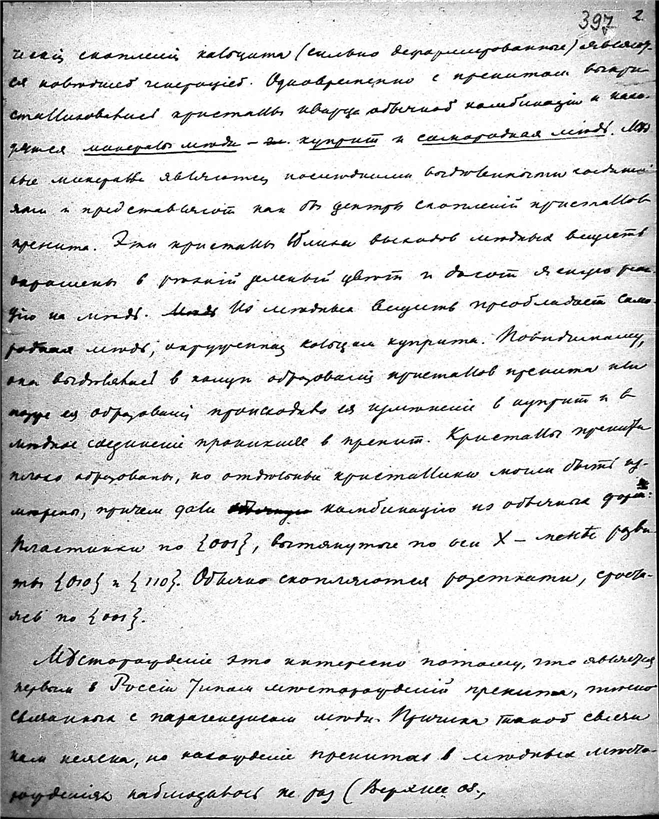 397 2.
ческiй скопленiй кальцита (сильно деформированные) являет-
ся новѣйшей генерацiей. Одновременно с пренитом выкри-
сталлизовались кристаллы кварца обычной комбинацiи и нахо-
дятся минералы мѣди – гл. куприт и самородная мѣдь. Мѣд
ные минералы являются послѣдними выдѣленными
и представляют как бы центры скопленiй кристаллов
пренита. Эти кристаллы вблизи выходов мѣдных веществ
окрашены в рѣзкiй зеленый цвѣт и дают ясную реак
цiю на мѣдь. Из мѣдных веществ преобладает само
родная мѣдь, окруженная кольцом куприта. Повидимому,
она выдѣлялась в концѣ образованiя кристаллов пренита или
ея образованiя происходило ея измѣненiе в куприт и в
мѣдное соединенiе проникшее в пренит. Кристаллы пренита
плохо образованы, но отдѣльные кристаллики могли быть из-
мѣрены, причем дали комбинацiю из обычных форм:
Пластинки по {001}, вытянутые по оси X – менѣе разви
ты {010} и {110}. Обычно скопляются розетками, сроста-
ясь по {001}.
Мѣсторожденiе это интересно потому, что является
первым в Россiи типом мѣсторожденiй пренита, тѣсно
связанных с парагенезисом мѣди. Причина такой связи
нам неясна, но нахожденiе пренитов в мѣдных мѣсто-
рожденiях наблюдалось не раз (Верхнее оз.,